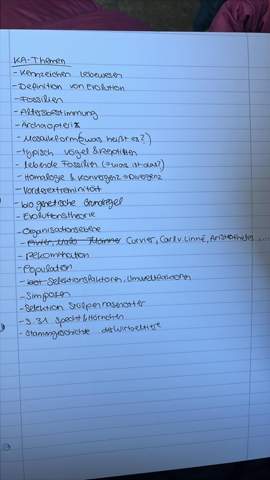 KA-Themen
- Kennzeichen Lebewesen
- Definition von Evolution
- Fossilien
- Altersbestimmung
- Archaeopterix
- Mosaikform (was heißt es?)
- typisch Vögel & Reptilien
- lebende Fossilien (was ist das?)
- Homologie & Konvergenz Divergenz
- Vorderextremität
- biogenetische Grundregel
- Evolutionstheorie
- Organisationsebene
- Cuvier, Carl v. Linné, Aristoteles ...
- Rekombination
- Population
- Selektionsfaktoren, Umweltfaktoren
- Simpsen
- Selektion Stülpnasenotter
- S. 31 Specht & Hörnchen
- Stammgeschichte der Wirbeltiere